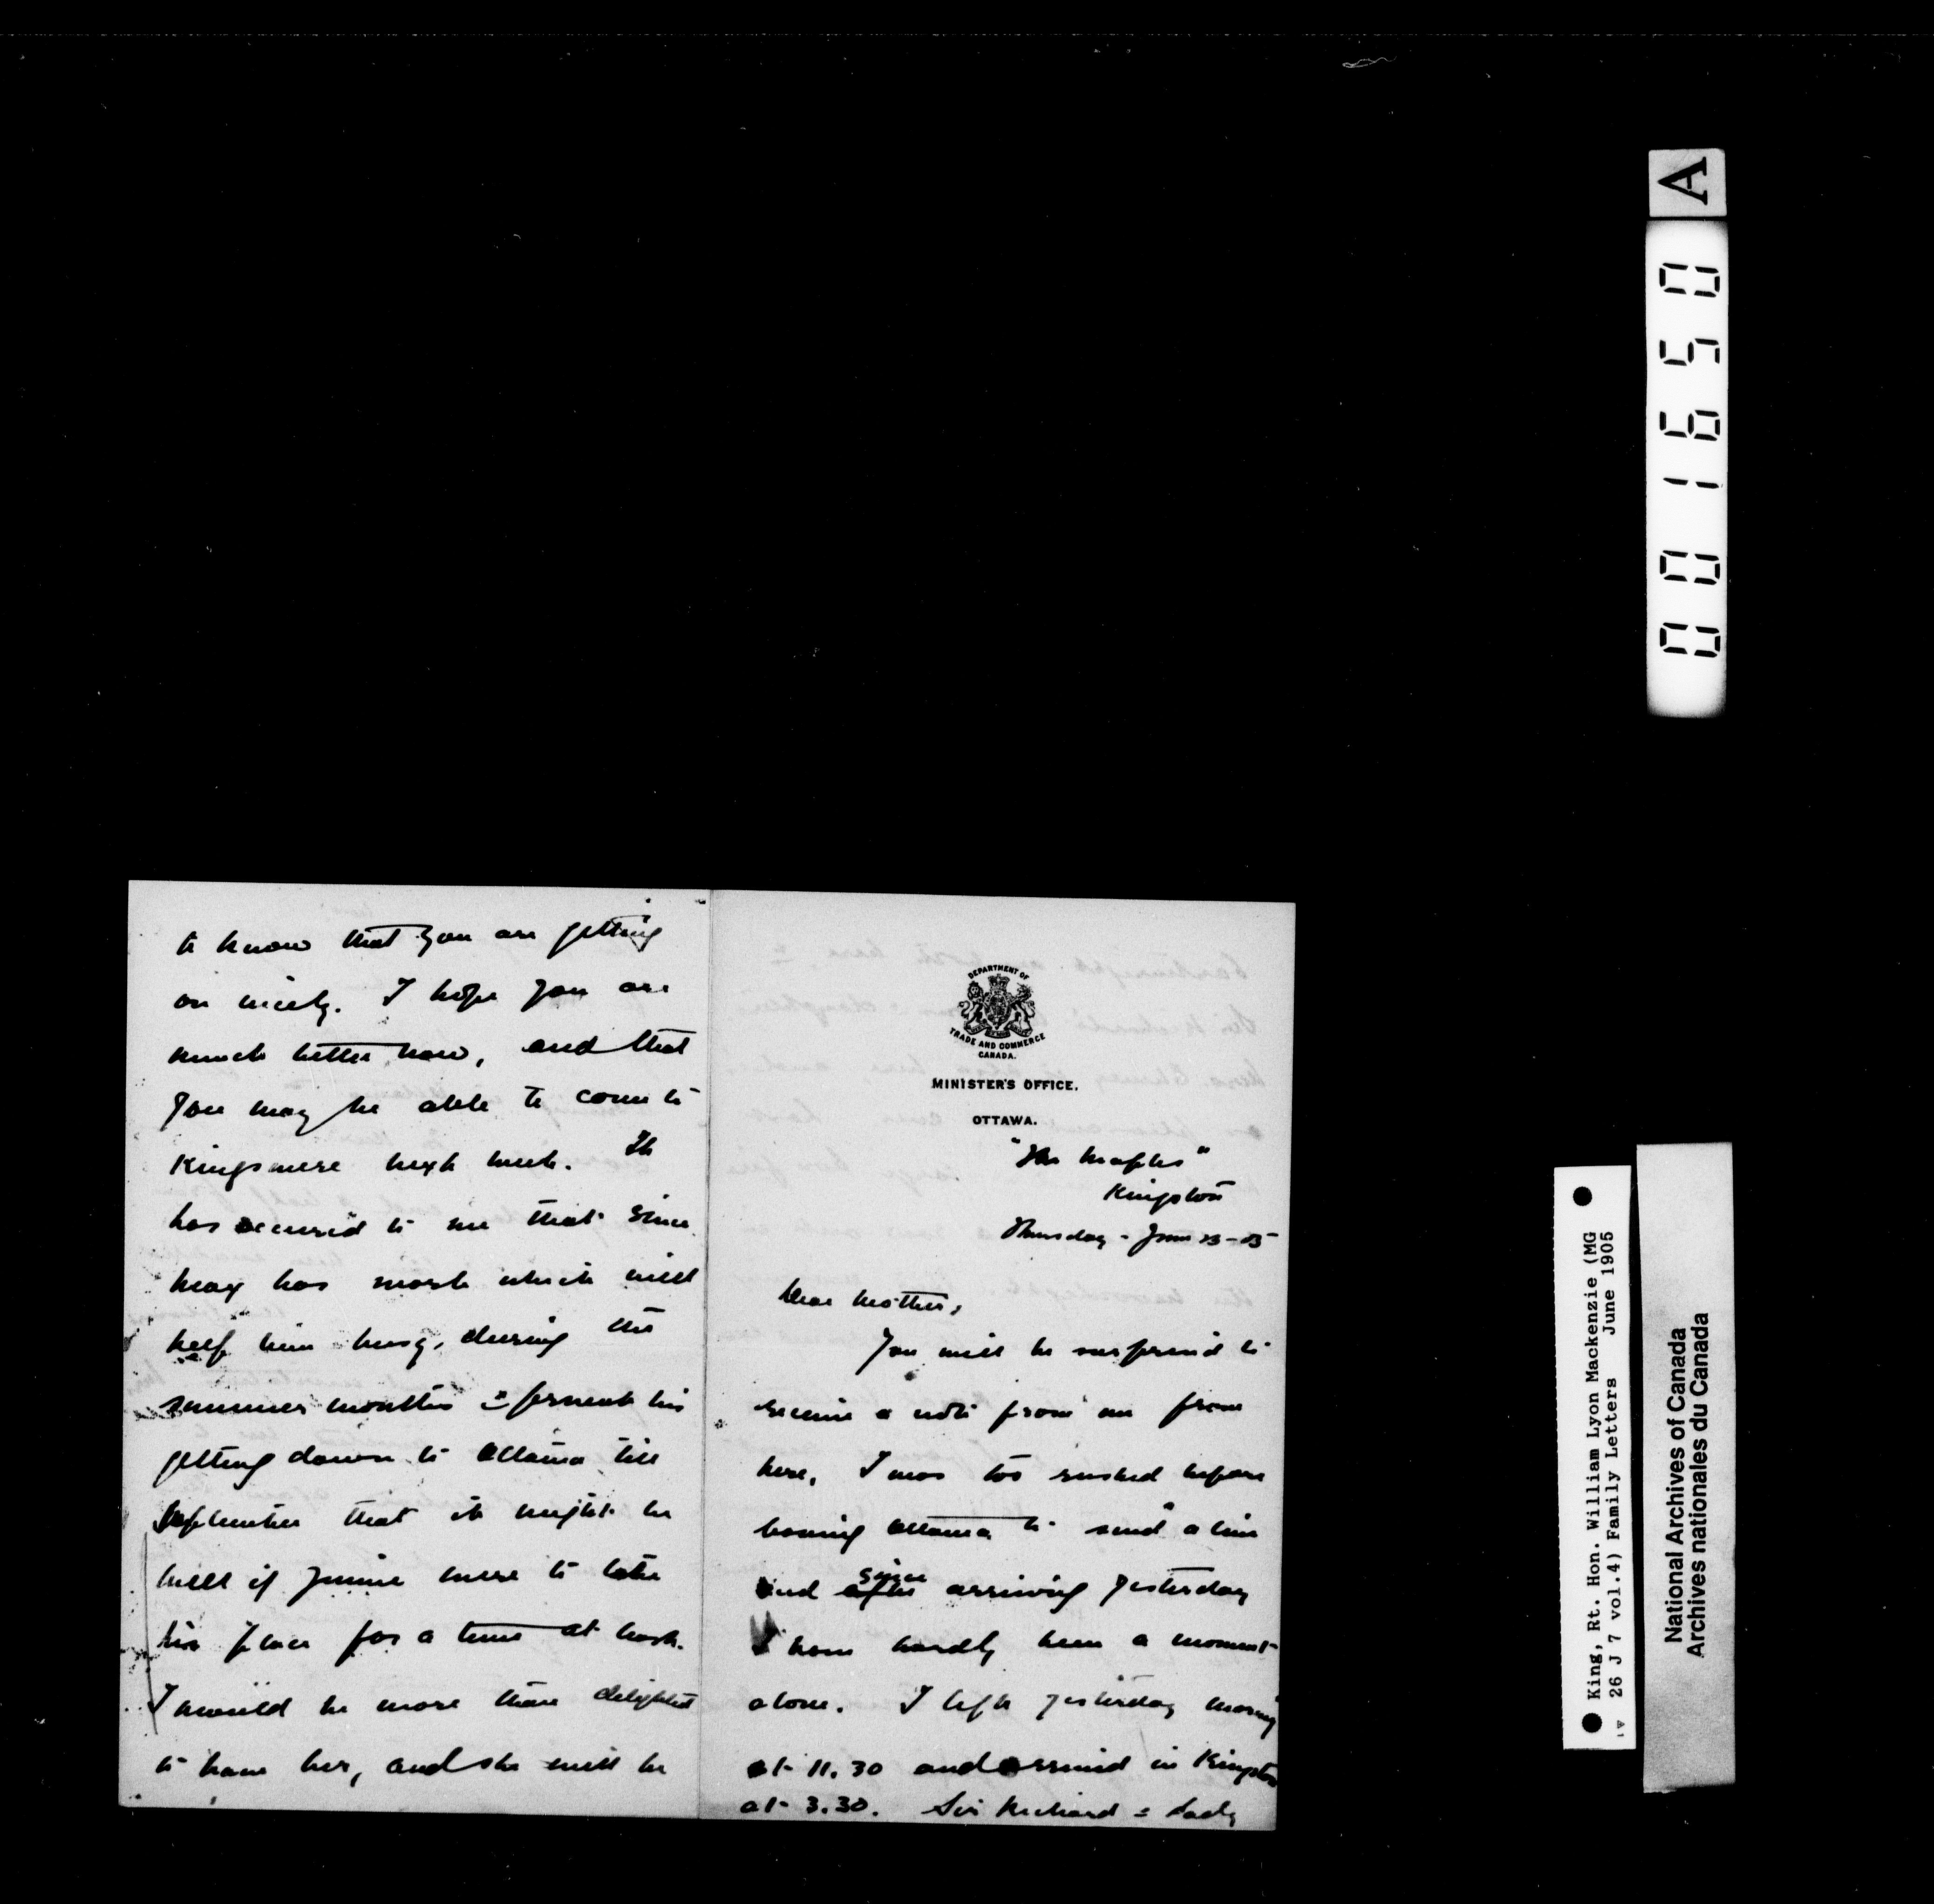 to know that you are getting
on nicely. I hope you are
much better now, and that
you may be able to come to
Kingsmere next week. It
has occurred to me that since
Max has work which will
keep him busy, during the
summer months & prevent his
getting down to Ottawa till
September that it might be
well if Jennie were to take
his place for a time at least.
I would be more than delighted
to have her, and she will be
DEPARTMENT OF
TRADE AND COMMERCE
CANADA.
MINISTER'S OFFICE.
OTTAWA.
"The Maples"
Kingston
Thursday - June
Dear Mother,
You will be surprised to
receive a note from me from
here, I was too rushed before
leaving Ottawa to send a line
and after since arriving yesterday
I have hardly been a moment
alone. I left yesterday morning
at 11.30 and arrived in Kingston
at 3.30. Sir Richard & Lady
A
001650
King, Rt. Hon. William Lyon Mackenzie (MG
26 J 7 vol.4) Family Letters June 1905
National Archives of Canada
Archives nationales du Canada